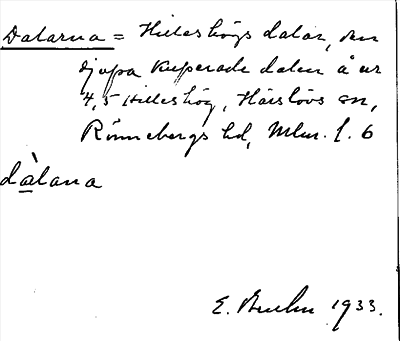 Dalarna = Hilleshögs dalar, den
djupa kuperade dalen å nr
4,5 Hilleshög, Härslövs sn,
Rönnebergs hd, Mlm. l. 6
dàlana
E. Bruhn 1933.